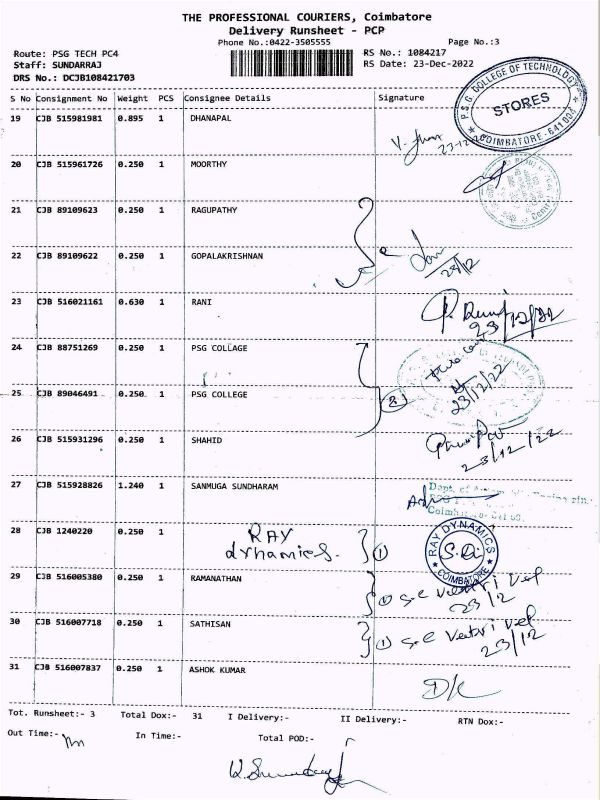 THE PROFESSIONAL COURIERS, Coimbatore
Delivery Runsheet - PCP
Phone No.:0422-3505555 Page No.:3
Route: PSG TECH PC4 RS No.: 1084217
Staff: SUNDARRAJ RS Date: 23-Dec-2022
DRS No.: DCJB108421703
S No Consignment No Weight PCS Consignee Details Signature
P.S.G. COLLEGE OF TECHNOLOGY
STORES
COIMBATORE - 641 004
19 CJB 515981981 0.895 1 DHANAPAL
20 CJB 515961726 0.250 1 MOORTHY
21 CJB 89109623 0.250 1 RAGUPATHY
22 CJB 89109622 0.250 1 GOPALAKRISHNAN
23 CJB 516021161 0.630 1 RANI
23/12/22
24 CJB 88751269 0.250 1 PSG COLLAGE
23/12/22
25 CJB 89046491 0.250 1 PSG COLLEGE
26 CJB 515931296 0.250 1 SHAHID
23/12/22
27 CJB 515928826 1.240 1 SANMUGA SUNDHARAM
28 CJB 1240220 0.250 1 RAY
dynamics. 1
RAY DYNAMICS
COIMBATORE
29 CJB 516005380 0.250 1 RAMANATHAN
23/12
30 CJB 516007718 0.250 1 SATHISAN
23/12
31 CJB 516007837 0.250 1 ASHOK KUMAR
Tot. Runsheet:- 3 Total Dox:- 31 I Delivery:- II Delivery:- RTN Dox:-
Out Time:- In Time:- Total POD:-